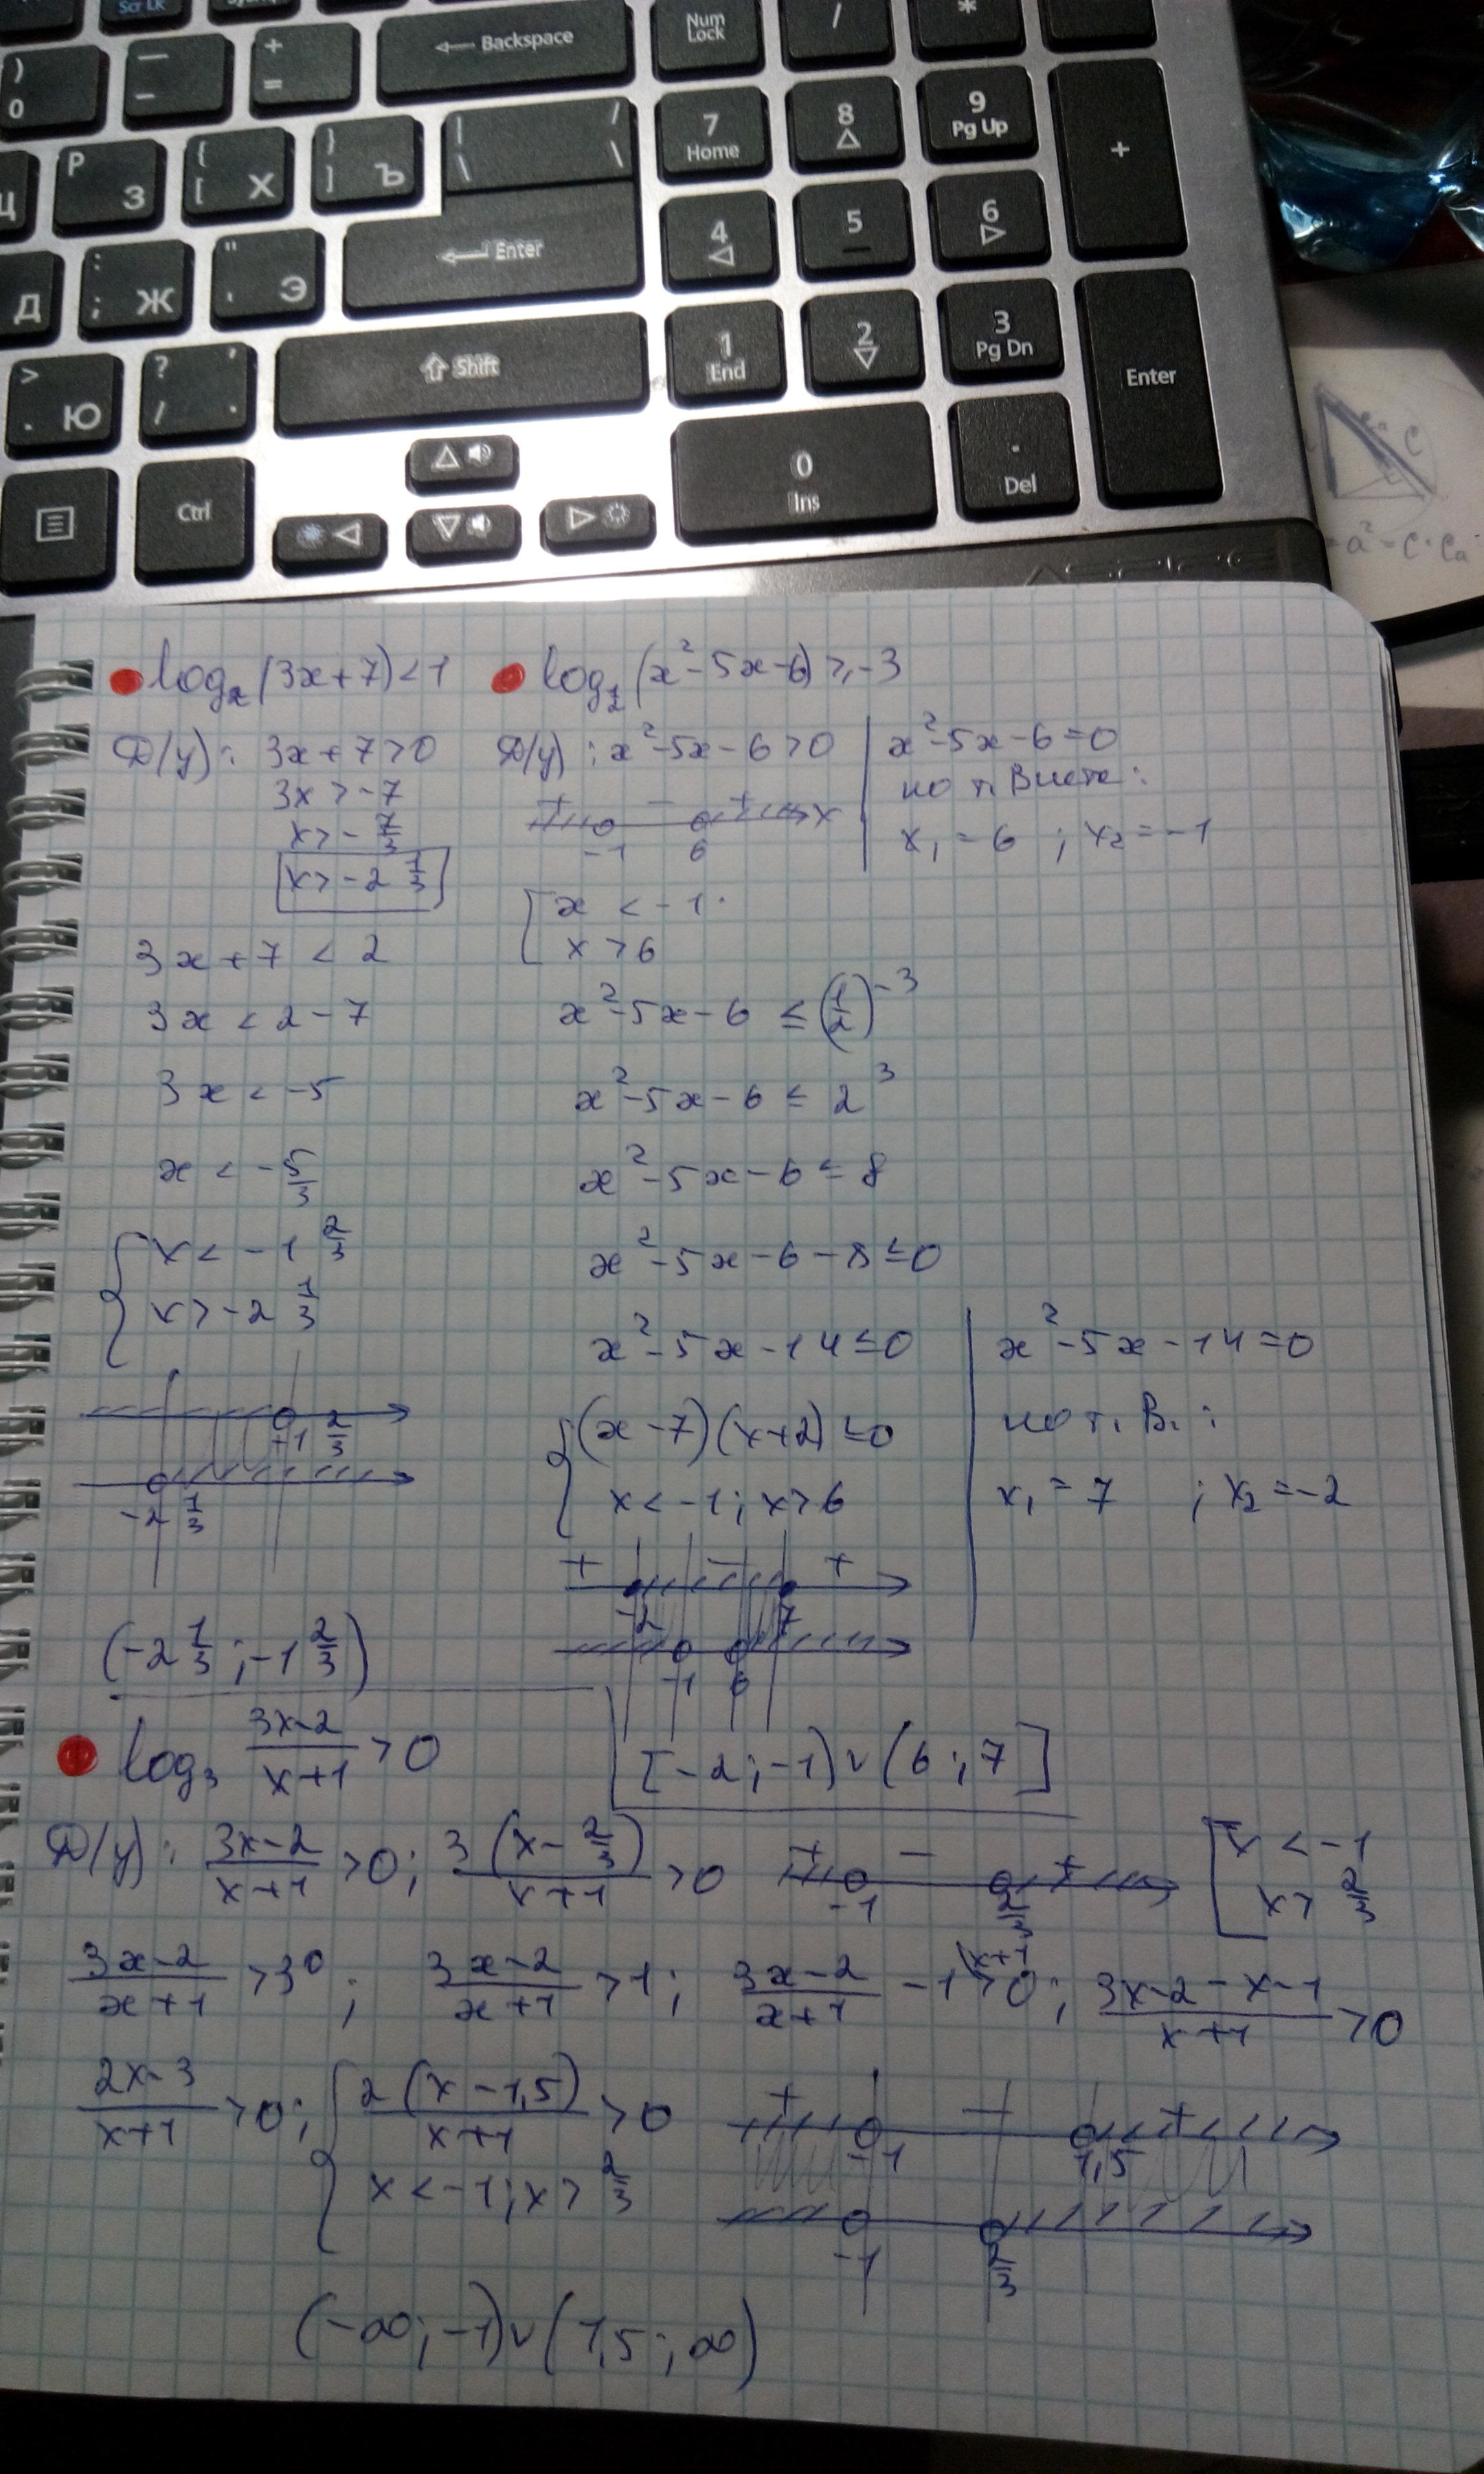 Scr Lk
) 0
— –
+ =
← Backspace
Num Lock
/
*
Ц
P З
{ [ Х
} ] Ъ
| \ / \
7 Home
8
9 Pg Up
+
Д
: ; Ж
" ' Э
← Enter
4
5
6
> . Ю
? / , .
⇧ Shift
1 End
2
3 Pg Dn
Enter
Ctrl
0 Ins
. Del
c
a² = c · cₐ
log₂(3x+7)<1
D(y): 3x+7>0
3x>-7
x>-7/3
x>-2 1/3
3x+7<2
3x<2-7
3x<-5
x<-5/3
{ x<-1 2/3
x>-2 1/3
-1 2/3
-2 1/3
(-2 1/3; -1 2/3)
log_{1/2}(x²-5x-6)≥-3
D(y): x²-5x-6>0
+ - + x
-1 6
x²-5x-6=0
по т. Виета:
x₁=6; x₂=-1
[ x<-1
x>6
x²-5x-6≤(1/2)⁻³
x²-5x-6≤2³
x²-5x-6≤8
x²-5x-6-8≤0
x²-5x-14≤0
{ (x-7)(x+2)≤0
x<-1; x>6
x²-5x-14=0
по т. В.:
x₁=7; x₂=-2
+ - +
-2 7
-1 6
[-2;-1)∨(6;7]
log₃ (3x-2)/(x+1)>0
D(y): (3x-2)/(x+1)>0; 3(x-2/3)/(x+1)>0
+ - +
-1 2/3
[ x<-1
x>2/3
(3x-2)/(x+1)>3⁰; (3x-2)/(x+1)>1; (3x-2)/(x+1)-1^{(x+1}>0; (3x-2-x-1)/(x+1)>0
(2x-3)/(x+1)>0; { 2(x-1,5)/(x+1)>0
x<-1; x>2/3
+ - +
-1 1,5
-1 2/3
(-∞;-1)∨(1,5;∞)